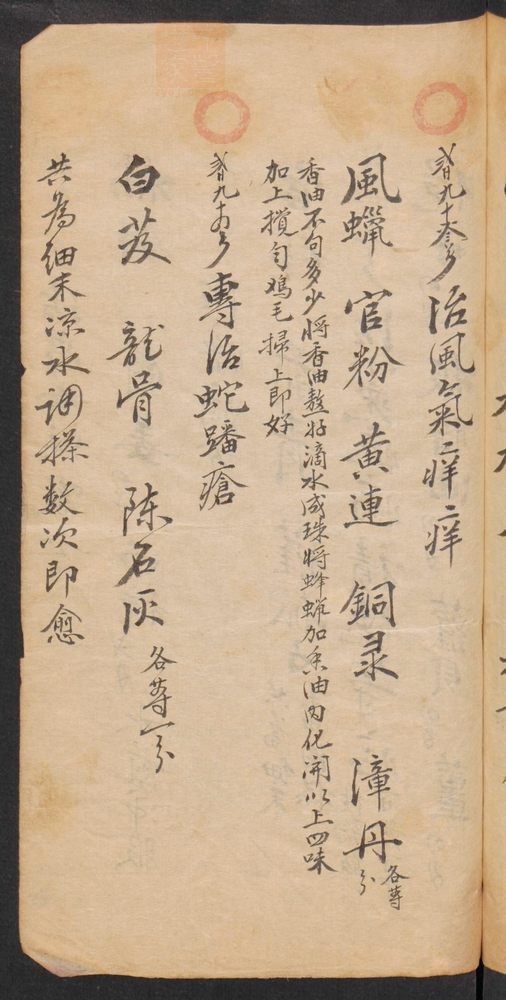 九十叁 治風氣痒痒
風蠟 官粉 黄連 銅录 漳丹 各等分
香油不句多少將香油熬好滴水成珠將蜂蝋加香油内化開以上四味
加上攪匀鸡毛掃上即好
九十 專治蛇蟠瘡
白芨 龍骨 陈石灰 各等一分
共為细末凉水调搽数次即愈